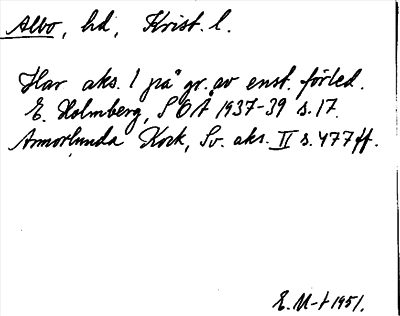 Albo, hd, Krist. l.
Har aks. 1 på gr. av enst. förled.
E. Holmberg, SOÅ 1937-39 s. 17.
Annorlunda Kock, Sv. aks. II s. 477 ff.
E. M-t 1951.